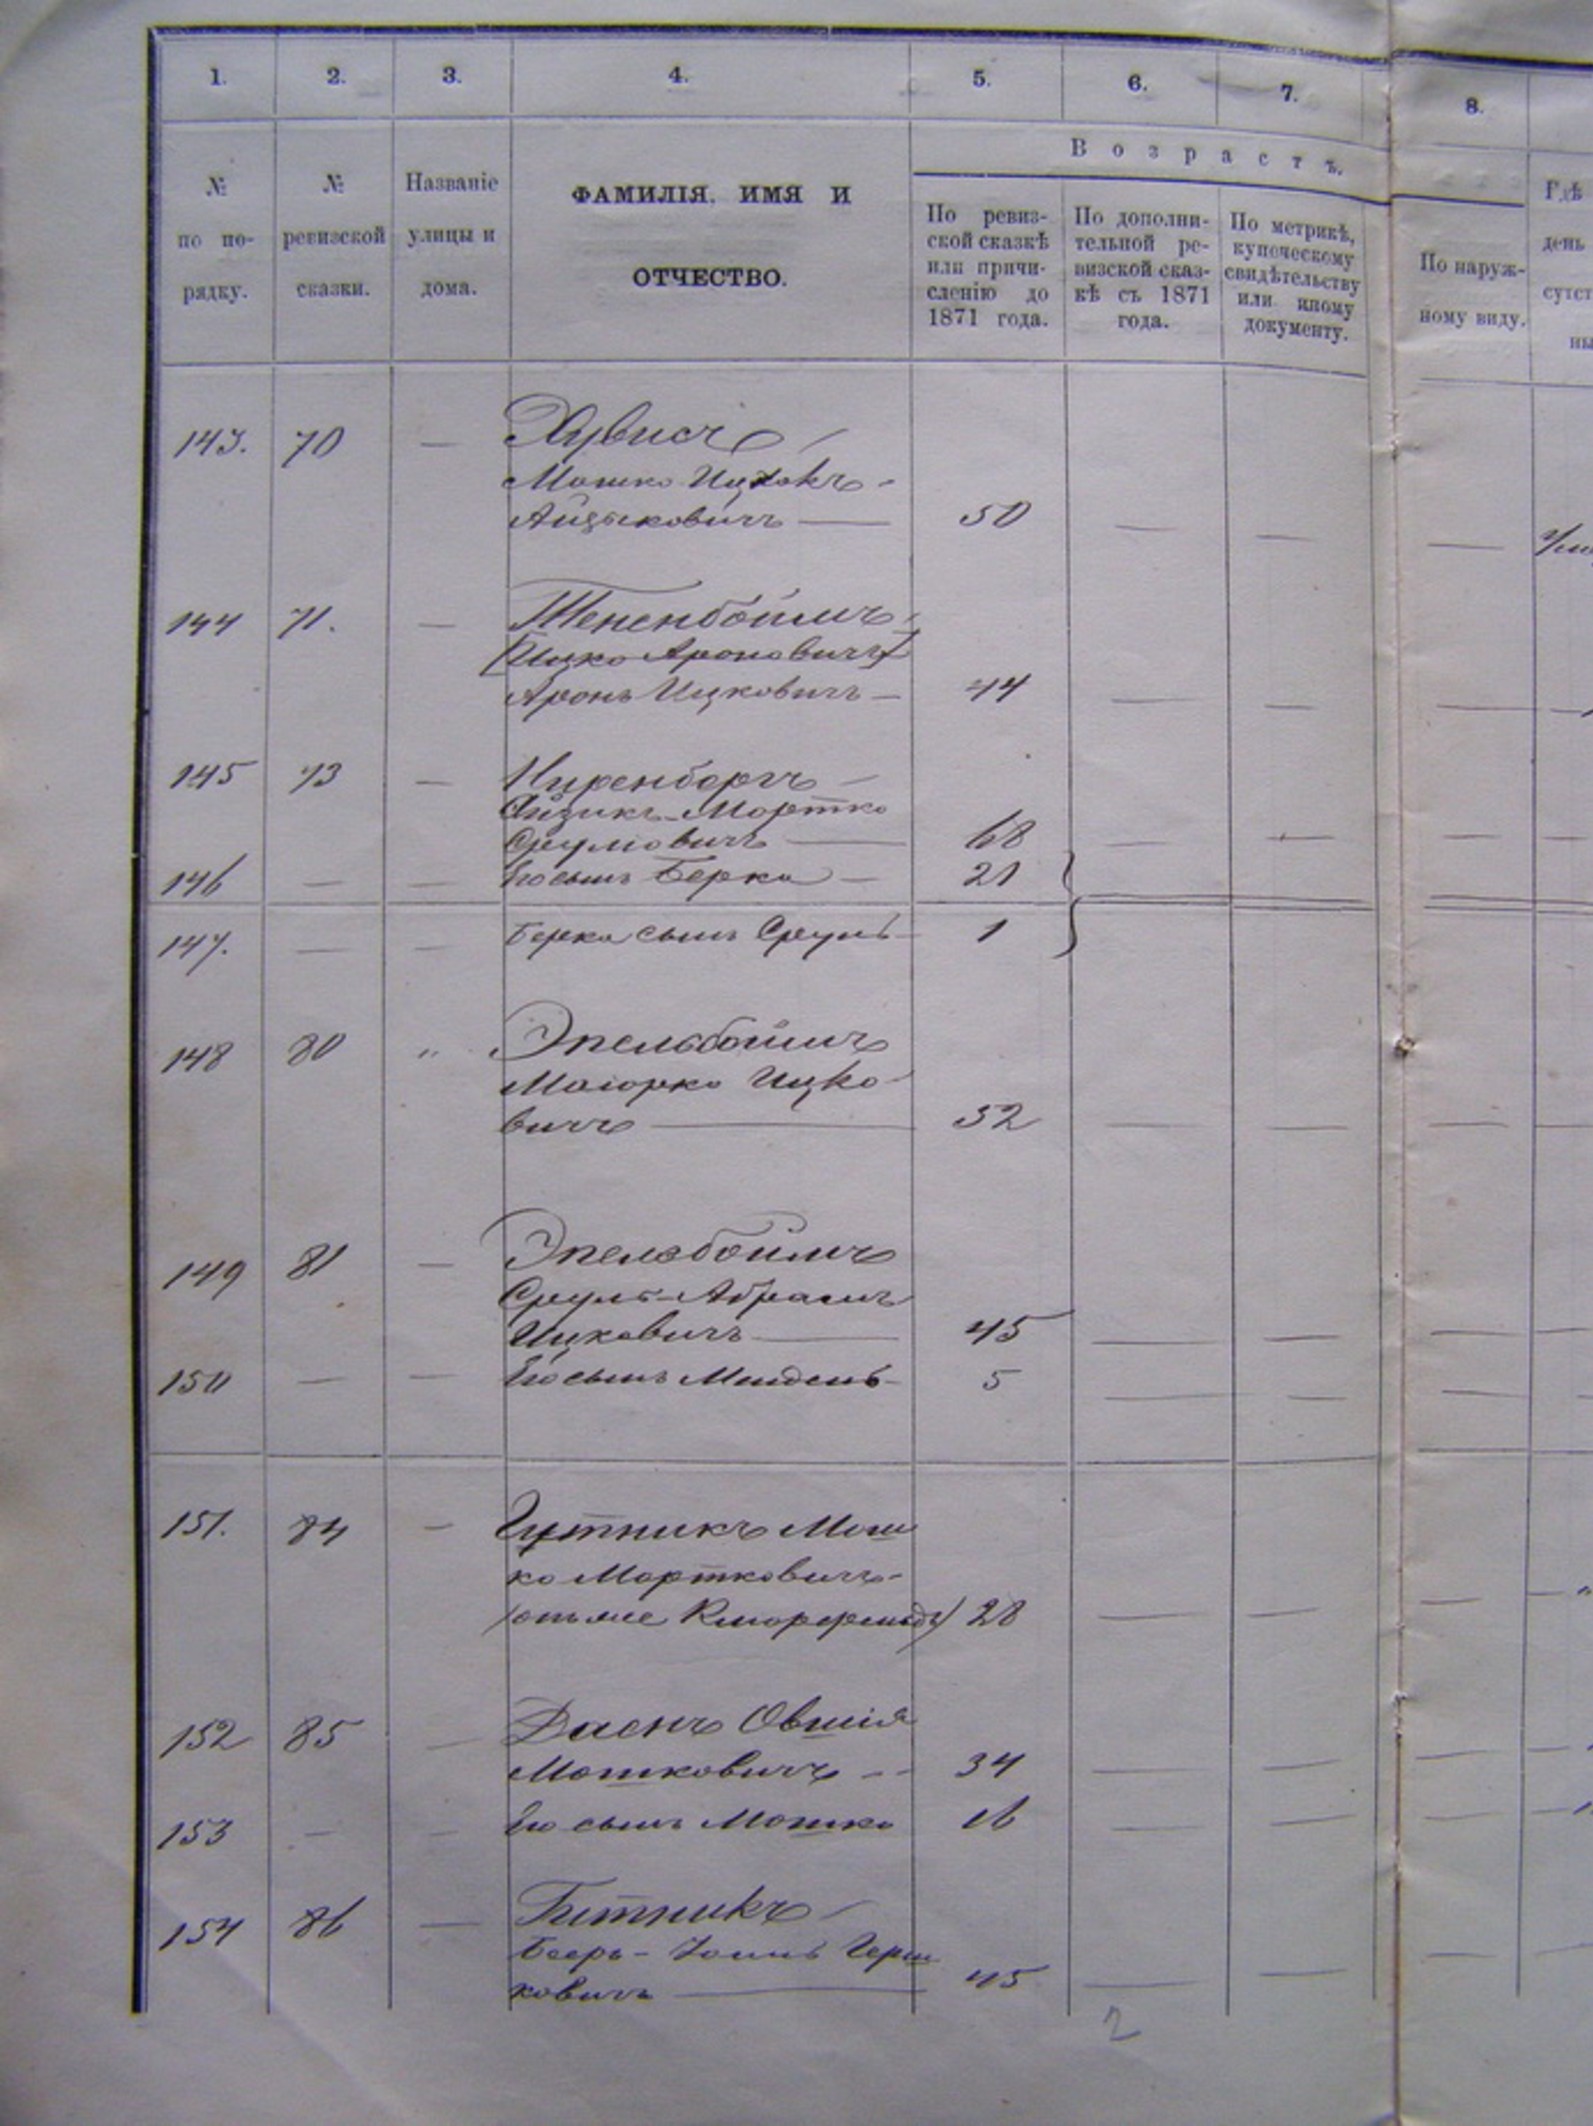 1. 2. 3. 4. 5. 6. 7. 8.
Возрастъ.
№ по порядку.
№ ревизской сказки.
Названіе улицы и дома.
ФАМИЛІЯ, ИМЯ И
ОТЧЕСТВО.
По ревиз-
ской сказкѣ
или причи-
сленію до
1871 года.
По дополни-
тельной ре-
визской сказ-
кѣ съ 1871
года.
По метрикѣ,
купеческому
свидѣтельству
или иному
документу.
По наруж-
ному виду.
Гдѣ
день
сутст
ны
143. 70 —
Мошко Ицхокъ-
Айзыковичъ — 50 — — —
144 71. — Тененбоймъ-
[Ицко Ароновичъ]
Аронъ Ицковичъ — 44 — — —
145 73 — Ниренбергъ —
Айзикъ-Мортко
Сруловичъ — 68 — — —
146 — — Его сынъ Берко — 21
147. — — Берка сынъ Сруль — 1
148 80 " Эпельбоймъ
Маіорко Ицко-
вичъ — 52 — — —
149 81 — Эпельбоймъ
Сруль-Абрамъ
Ицковичъ — 45 — — —
150 — — Его сынъ Мендель — 5 — — —
151. 84 — Гутникъ Мош
ко Мортковичъ-
28 — — —
152 85 — Даенъ Овшія
Мошковичъ — 34 — — —
153 — — Его сынъ Мошко 16 — — —
154 86 — Гитникъ —
Беръ- Герш
ковичъ — 45 — — —
2